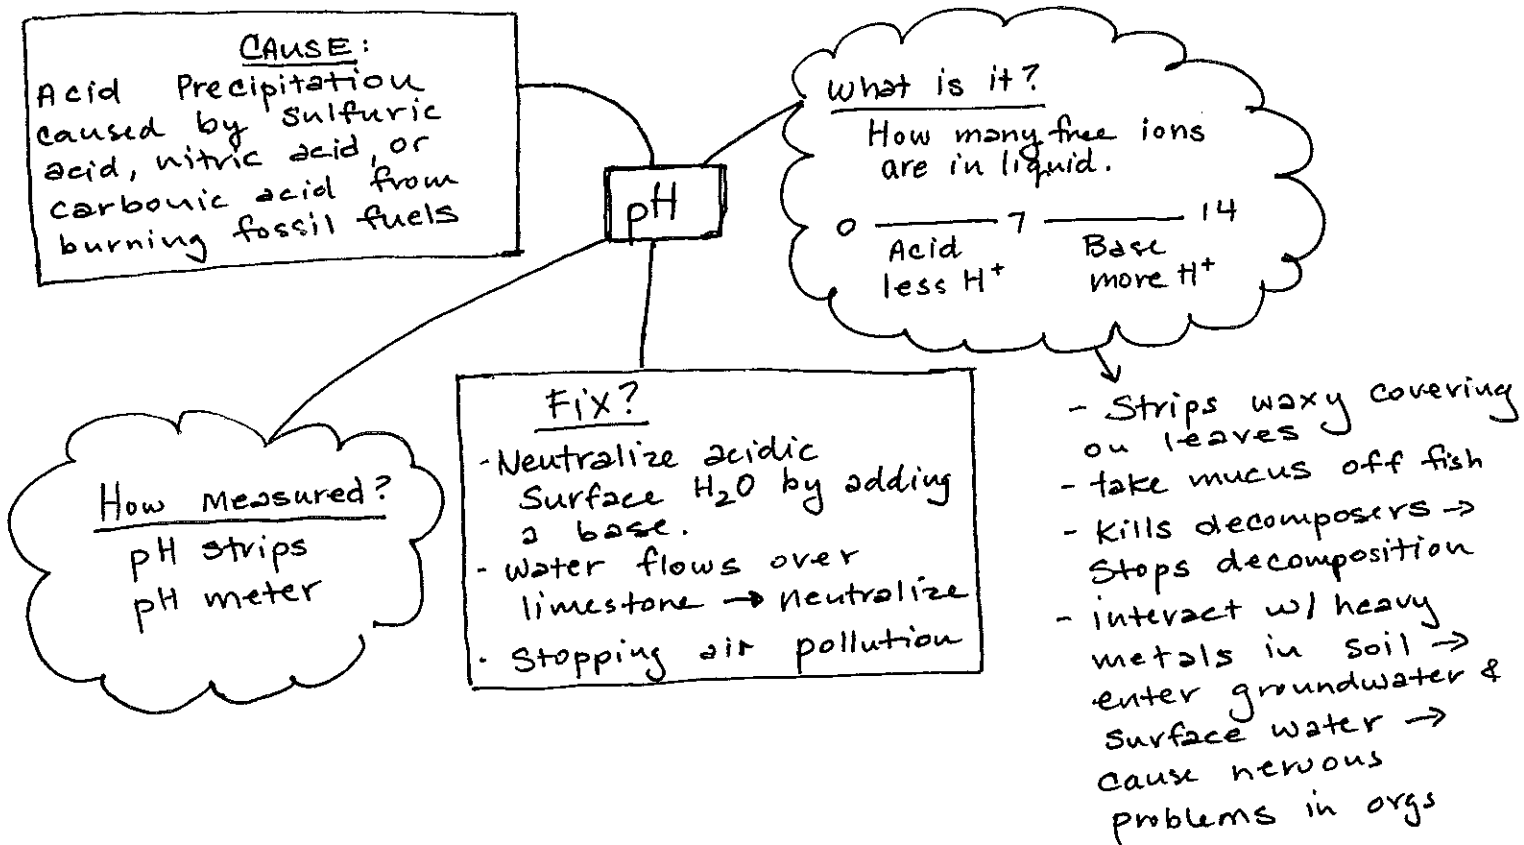 CAUSE:
Acid Precipitation
caused by sulfuric
acid, nitric acid, or
carbonic acid from
burning fossil fuels
pH
What is it?
How many free ions
are in liquid.
0 7 14
Acid Base
less H+ more H+
How measured?
pH strips
pH meter
Fix?
- Neutralize acidic
surface H2O by adding
a base.
- water flows over
limestone → neutralize
· Stopping air pollution
- Strips waxy covering
on leaves
- take mucus off fish
- Kills decomposers →
Stops decomposition
- interact w/ heavy
metals in soil →
enter groundwater &
surface water →
cause nervous
problems in orgs